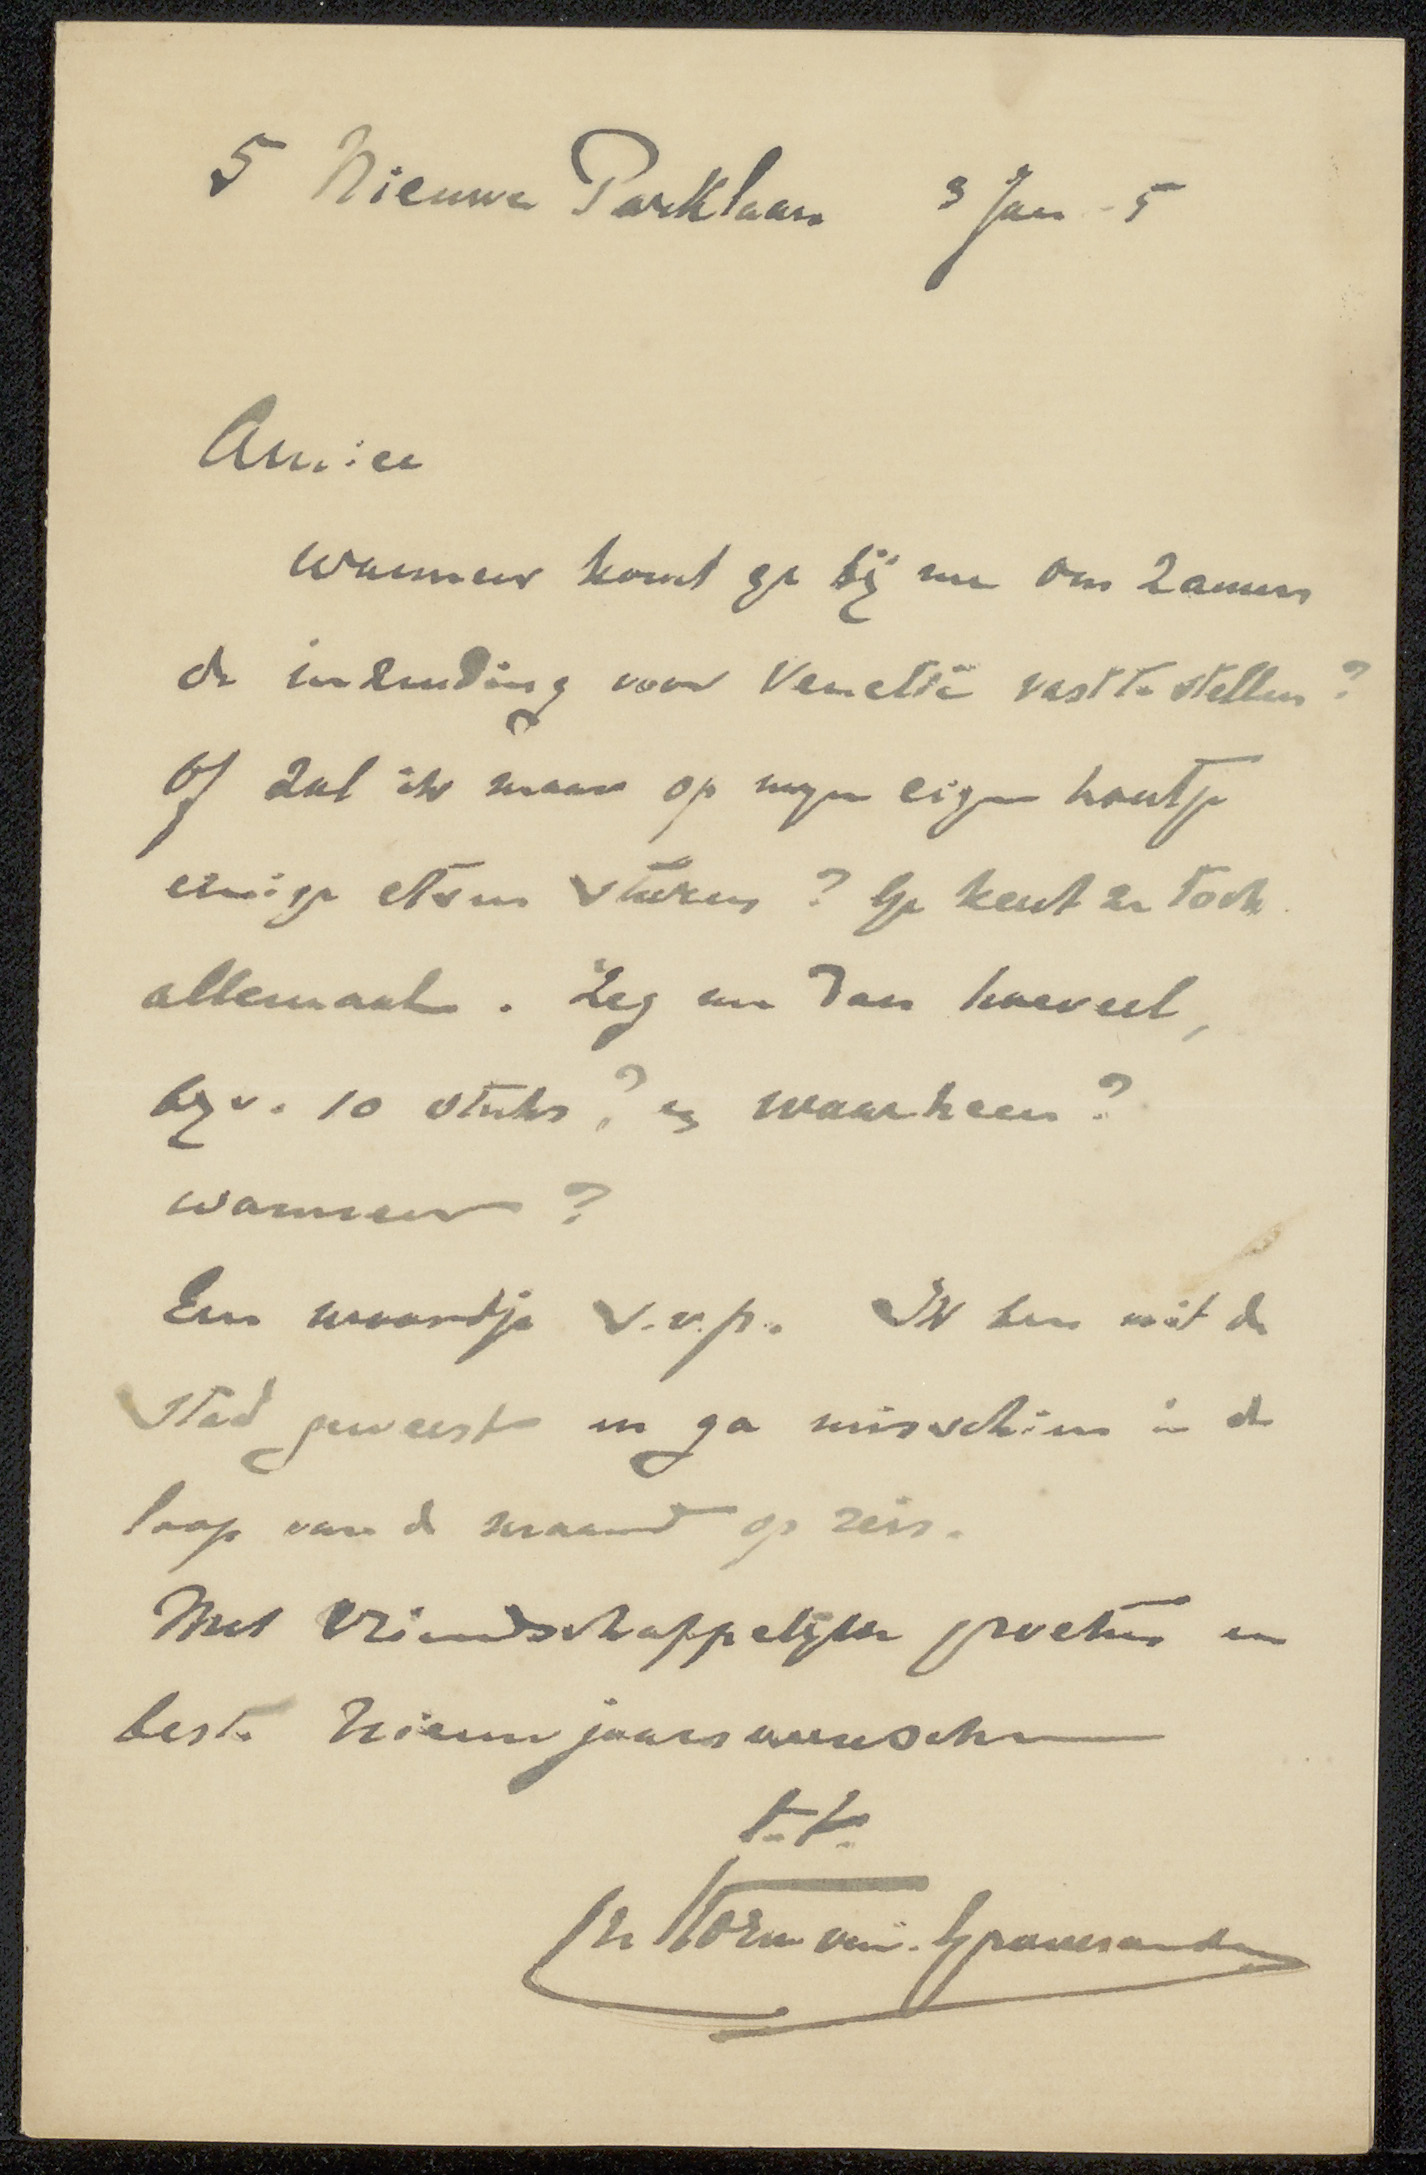 5 Nieuwe Parklaan 3 Jan - 5
Amice
Wanneer komt ge bij me om zamen
de inzending voor Venetië vast te stellen?
Of zal ik maar op mijn eigen houtje
eenige etsen sturen? Ge kent ze toch
allemaal. Zeg me dan hoeveel,
bijv. 10 stuks? en waarheen?
wanneer?
Een woordje s.v.p. Ik ben uit de
stad geweest en ga misschien in de
loop van de maand op reis.
Met vriendschappelijke groeten en
beste Nieuwjaarswenschen
t.t.
Ch Storm van 's Gravesande